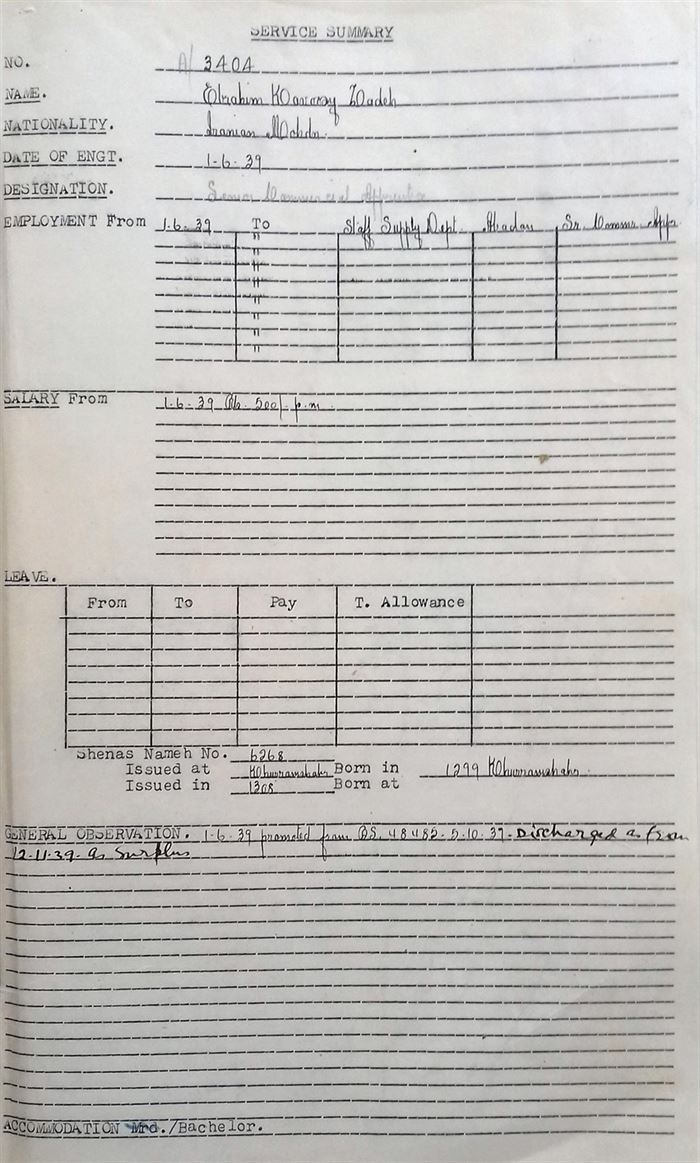 SERVICE SUMMARY
NO. A/ 3404
NAME. Ebrahim Zadeh
NATIONALITY. Iranian
DATE OF ENGT. 1-6-39
DESIGNATION. Senior Commercial Apprentice
EMPLOYMENT From 1-6-39 To Staff Supply Dept. Abadan Sr. Commr. App.
"
"
"
"
"
"
"
"
SALARY From 1-6-39 Rls. 500/- p.m.
LEAVE.
From To Pay T. Allowance
Shenas Nameh No. 6268
Issued at Khurramshahr Born in 1299 Khurramshahr.
Issued in 1308 Born at
GENERAL OBSERVATION. 1-6-39 promoted from 48485-5-10-37-Discharged as from
12-11-39- as Surplus
ACCOMMODATION Mrd./Bachelor.